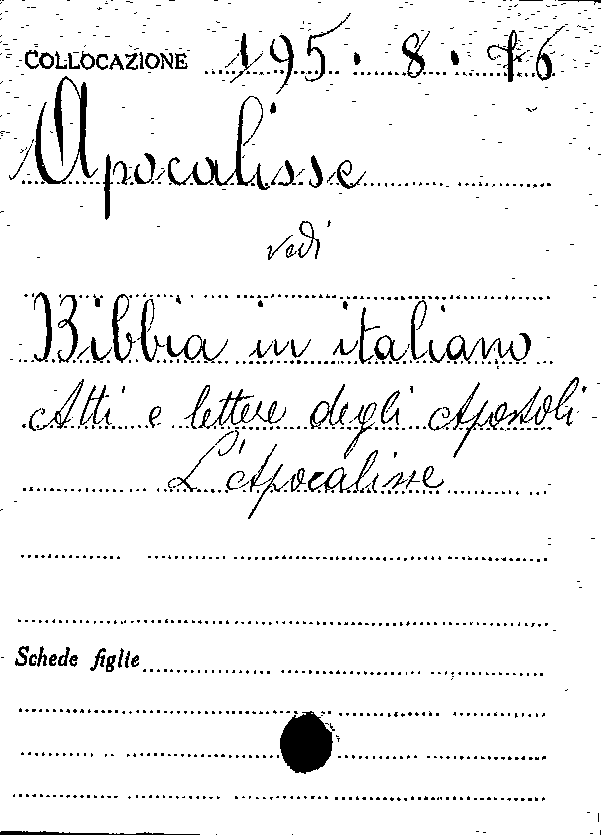 COLLOCAZIONE 195.8.76
Apocalisse
vedi
Bibbia in italiano
Atti e lettere degli Apostoli
L'Apocalisse
Schede figlie